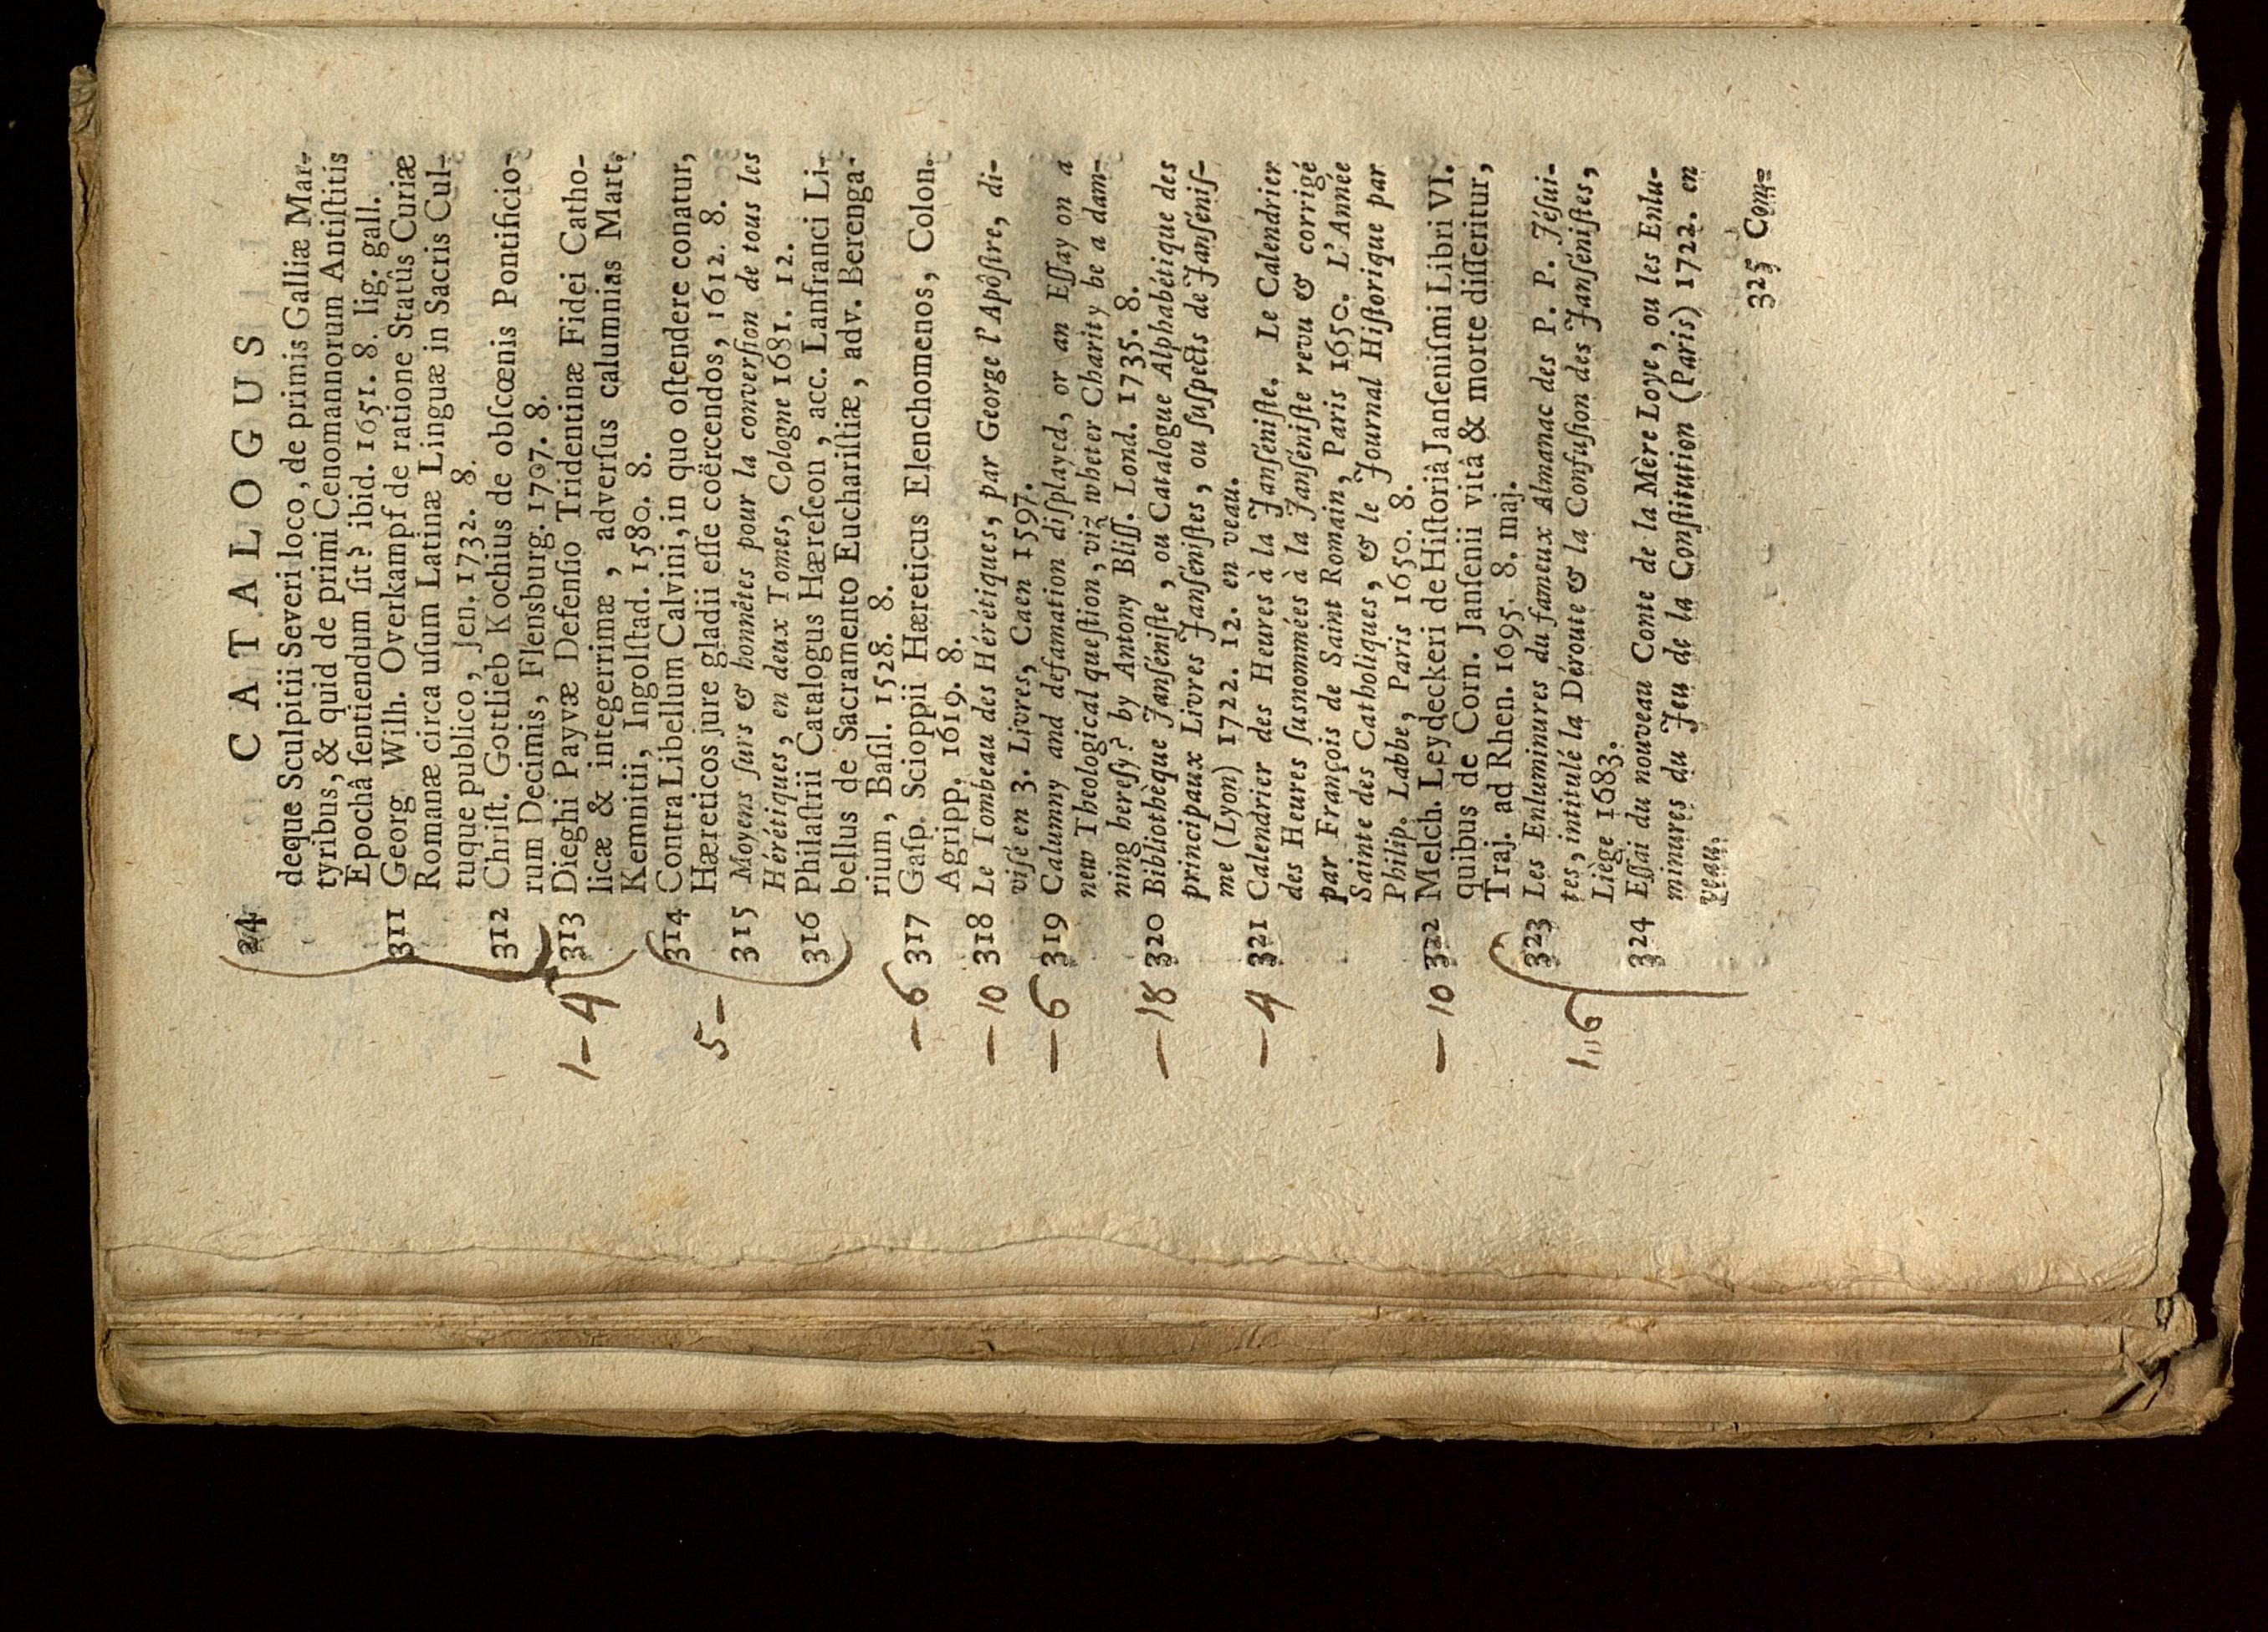 24 CATALOGUS
deque Sculpitii Severi loco, de primis Galliæ Mar-
tyribus, & quid de primi Cenomannorum Antiſtitis
Epochâ ſentiendum ſit? ibid. 1651. 8. lig. gall.
311 Georg Wilh. Overkampf de ratione Statûs Curiæ
Romanæ circa uſum Latinæ Linguæ in Sacris Cul-
tuque publico, Jen. 1732. 8.
312 Chriſt. Gottlieb Kochius de obſcœnis Pontificio-
rum Decimis, Flensburg. 1707. 8.
1-4 313 Dieghi Payvæ Defenſio Tridentinæ Fidei Catho-
licæ & integerrimæ, adverſus calumnias Mart.
Kemnitii, Ingolſtad. 1580. 8.
314 Contra Libellum Calvini, in quo oſtendere conatur,
Hæreticos jure gladii eſſe coërcendos, 1612. 8.
5- 315 Moyens ſurs & honnêtes pour la converſion de tous les
Hérétiques, en deux Tomes, Cologne 1681. 12.
316 Philaſtrii Catalogus Hæreſeon, acc. Lanfranci Li-
bellus de Sacramento Euchariſtiæ, adv. Berenga-
rium, Baſil. 1528. 8.
-6 317 Gaſp. Scioppii Hæreticus Elenchomenos, Colon.
Agripp. 1619. 8.
-10 318 Le Tombeau des Hérétiques, par George l'Apôſtre, di-
viſé en 3. Livres, Caen 1597.
-6 319 Calumny and defamation diſplayed, or an Eſſay on a
new Theological queſtion, viz̃ wheter Charity be a dam-
ning hereſy? by Antony Bliſſ. Lond. 1735. 8.
-18 320 Bibliothèque Janſéniſte, ou Catalogue Alphabétique des
principaux Livres Janſéniſtes, ou ſuſpects de Janſéniſ-
me (Lyon) 1722. 12. en veau.
-4 321 Calendrier des Heures à la Janſéniſte. Le Calendrier
des Heures ſusnommées à la Janſéniſte revu & corrigé
par François de Saint Romain, Paris 1650. L'Année
Sainte des Catholiques, & le Journal Hiſtorique par
Philip. Labbe, Paris 1650. 8.
-10 322 Melch. Leydeckeri de Hiſtoriâ Janſeniſmi Libri VI.
quibus de Corn. Janſenii vitâ & morte diſſeritur,
Traj. ad Rhen. 1695. 8. maj.
1,,6 323 Les Enluminures du fameux Almanac des P. P. Jéſui-
tes, intitulé la Déroute & la Confuſion des Janſéniſtes,
Liège 1683.
324 Eſſai du nouveau Conte de la Mère Loye, ou les Enlu-
minures du Jeu de la Conſtitution (Paris) 1722. en
veau.
325 Com-